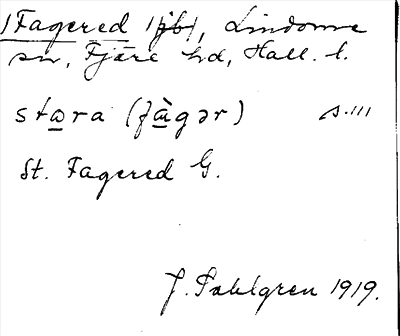 /Fagered /jb/, Lindome
sn, Fjäre hd, Hall. l.
stωra (fàgər) s. 111
St. Fagered G.
J. Sahlgren 1919.